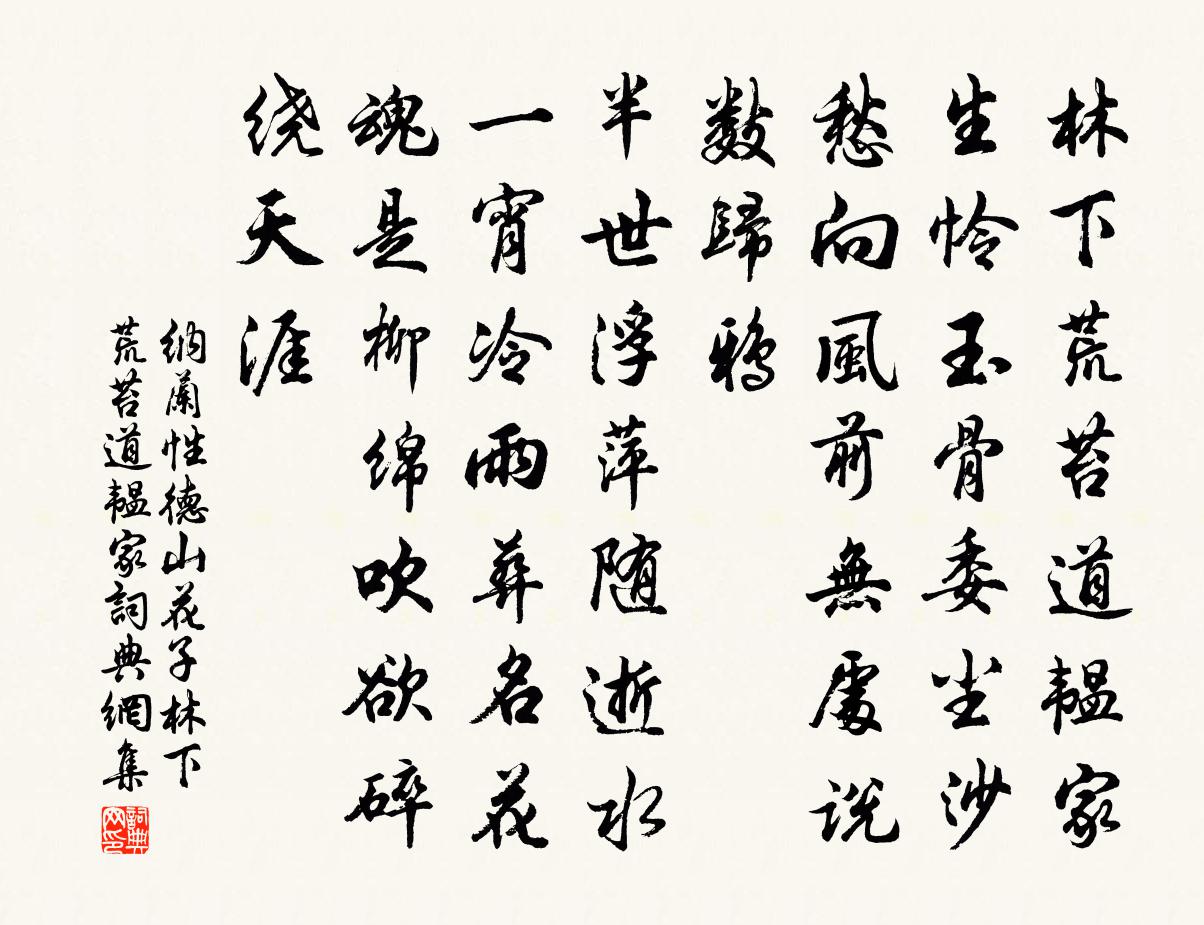 林下荒苔道韞家
生怜玉骨委尘沙
愁向風前無處说
数歸鴉
半世浮萍随逝水
一宵冷雨葬名花
魂是柳绵吹欲碎
绕天涯
納蘭性德山花子林下
荒苔道韞家詞典網集
詞典网印